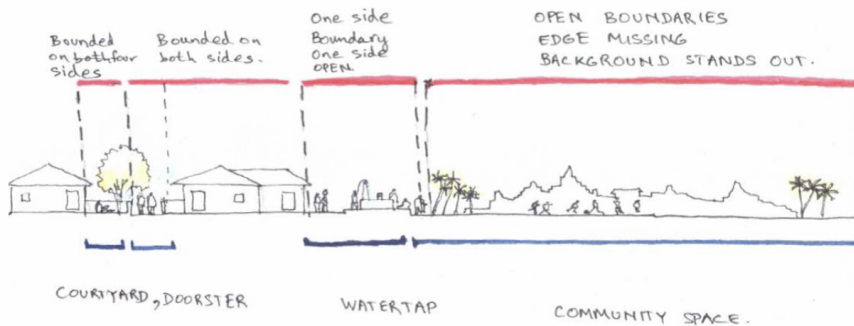 Bounded
on both four
sides
Bounded on
both sides.
One side
Boundary
One side
OPEN.
OPEN BOUNDARIES
EDGE MISSING
BACKGROUND STANDS OUT.
COURTYARD, DOORSTER
WATERTAP
COMMUNITY SPACE.